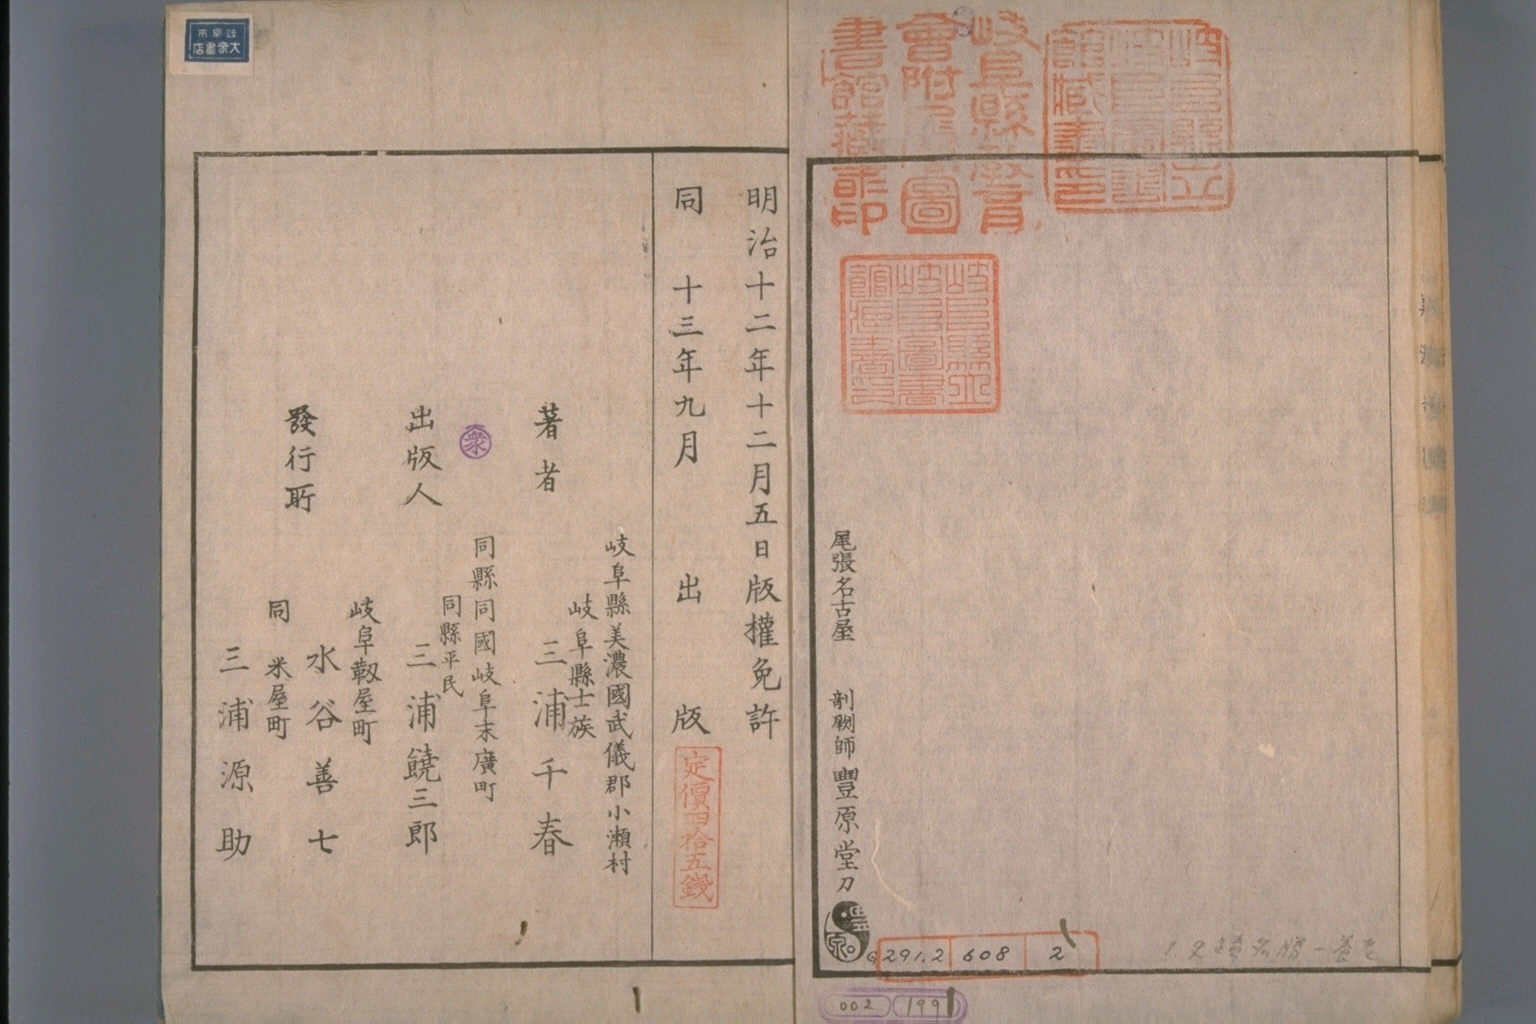 岐阜縣立
岐阜圖書
館藏書印
岐阜縣教育
會附屬圖
書館藏書印
岐阜縣立
岐阜圖書
館藏書印
尾張名古屋 剞劂師 豐原堂刀
G291.2 608 2
002 199
明治十二年十二月五日版權免許
同 十三年九月 出版
定價四拾五錢
岐阜縣美濃國武儀郡小瀬村
岐阜縣士族
著者 三浦千春
同縣同國岐阜末廣町
同縣平民
出版人 三浦饒三郎
衆
岐阜靭屋町
發行所 水谷善七
同 米屋町
三浦源助
岐阜市
大衆書店